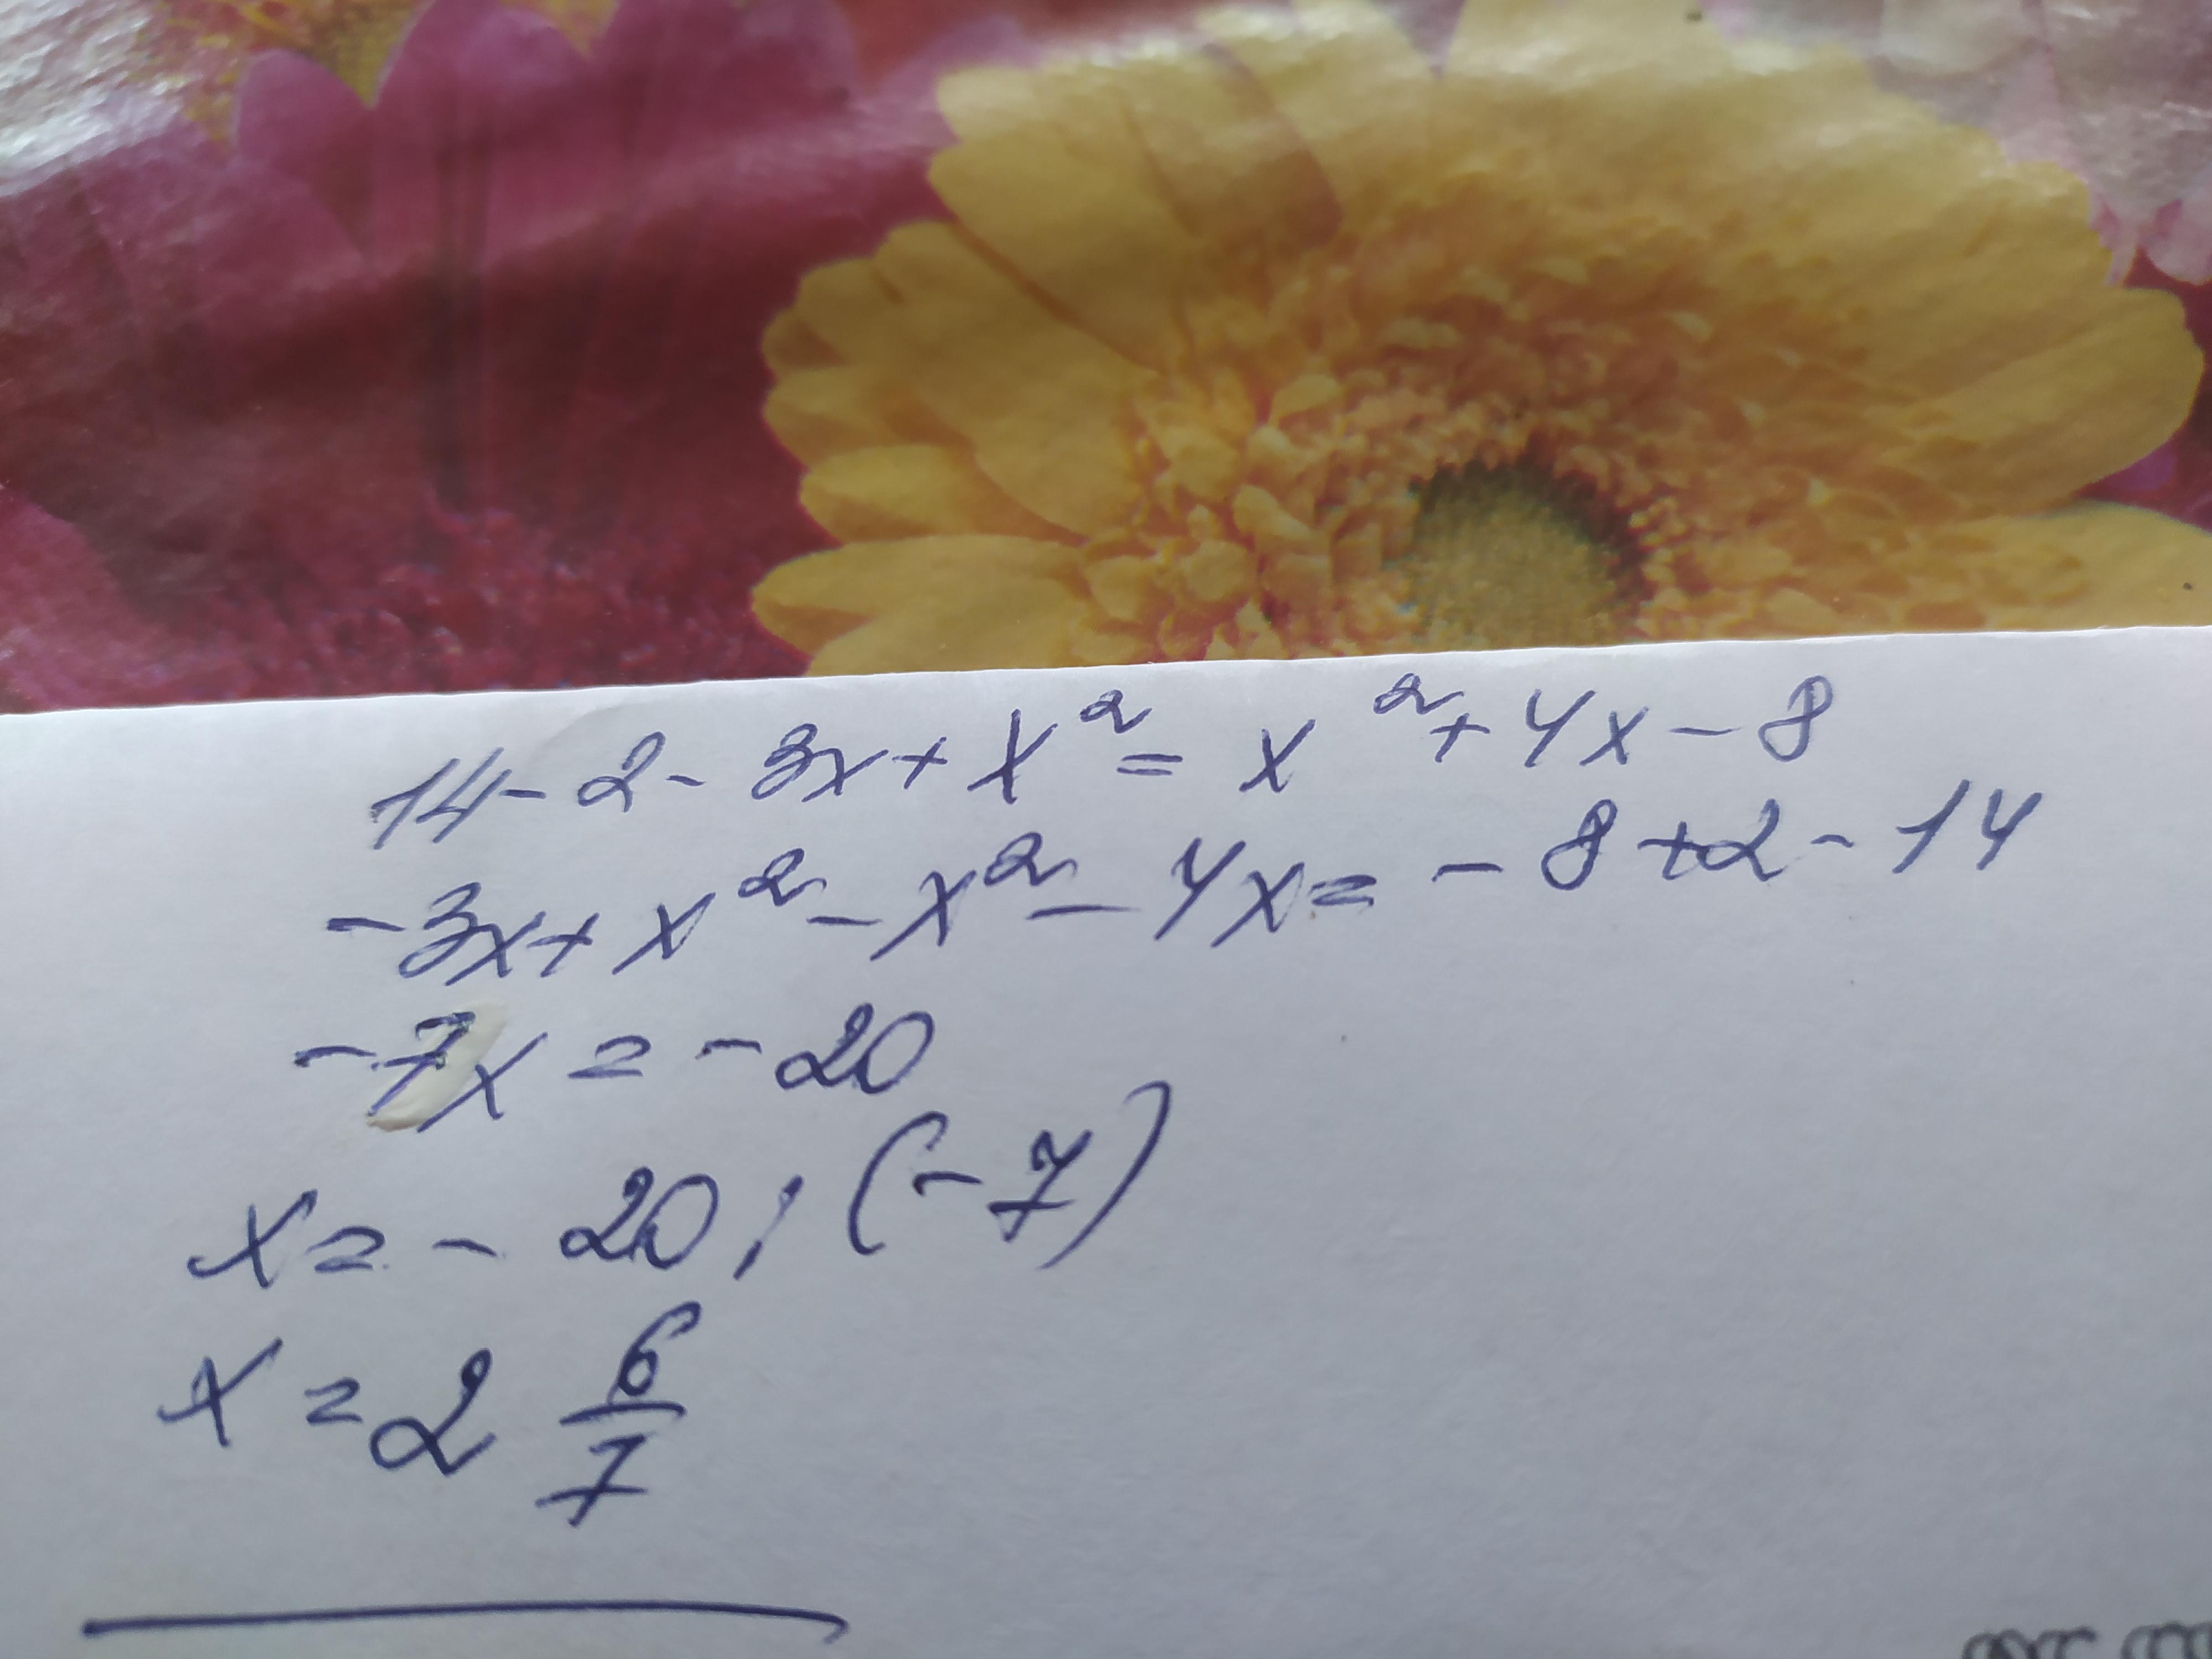 14 - 2 - 3x + x² = x² + 4x - 8
-3x + x² - x² - 4x = -8 + 2 - 14
-7x = -20
x = -20 : (-7)
x = 2 6/7